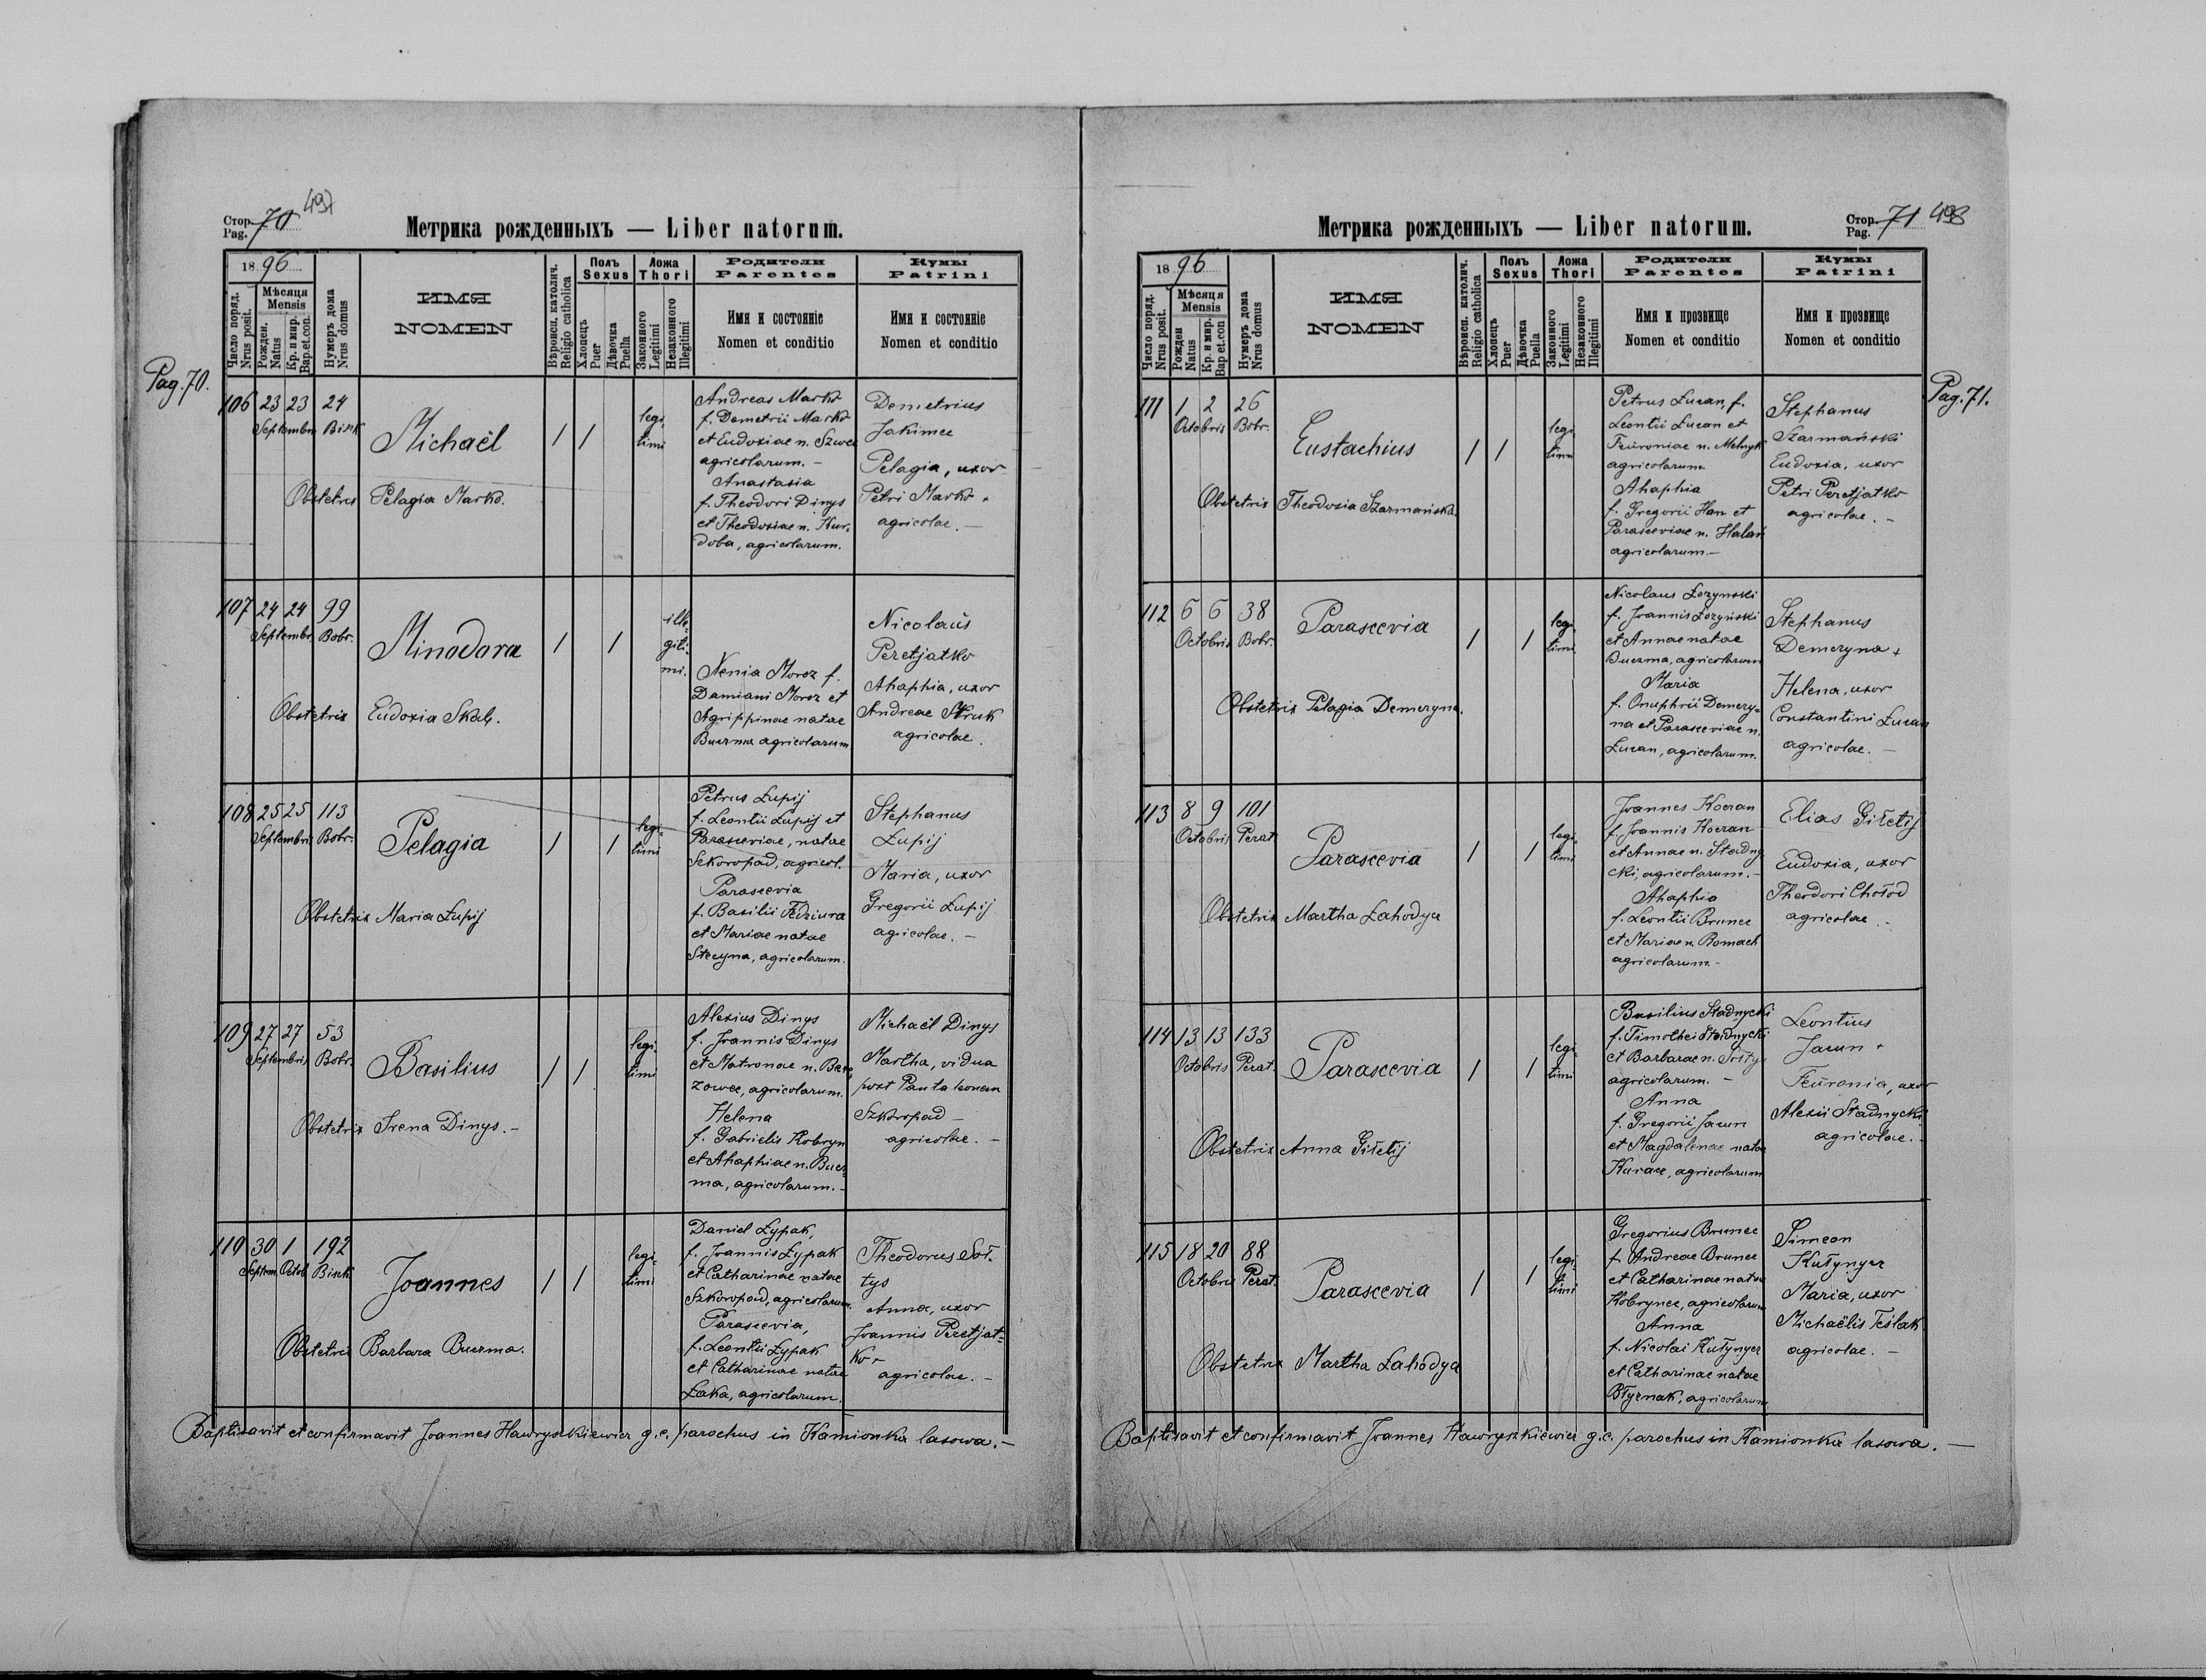 Стор. Pag. 70 497
Метрика рожденныхъ — Liber natorum.
Pag. 70.
1896
Число поряд. Nrus posit.
Мѣсяця Mensis
Рожден. Natus
Кр. и мир. Bap. et. con.
Нумеръ дома Nrus domus
ИМЯ
NOMEN
Вѣроисп. католич. Religio catholica
Полъ Sexus
Хлопецъ Puer
Дѣвочка Puella
Ложа Thori
Законного Legitimi
Незаконного Illegitimi
Родители
Parentes
Имя и состояніе
Nomen et conditio
Кумы
Patrini
Имя и состояніе
Nomen et conditio
106 23 23 24
Septembris Bisk
Michaël
/ /
legi-
timi
Obstetrix Pelagia Marko.
Andreas Marko
f. Demetrii Marko
et Eudoxiae n. Szwec
agricolarum. —
Anastasia
f. Theodori Dinys
et Theodosiae n. Kur-
doba, agricolarum.
Demetrius
Jakimec
Pelagia, uxor
Petri Marko
agricolae. —
107 24 24 99
Septembr. Bobr.
Minodora
/ /
ille-
giti-
mi.
Obstetrix Eudoxia Skab.
Xenia Moroz f.
Damiani Moroz et
Agrippinae natae
Buczma agricolarum
Nicolaus
Peretjatko
Ahaphia, uxor
Andreae Struk
agricolae.
108 25 25 113
Septembris Bobr.
Pelagia
/ /
legi-
timi
Obstetrix Maria Łupij
Petrus Łupij
f. Leontii Łupij et
Parasceviae, natae
Szkoropad, agricol.
Parascevia
f. Basilii Fedziura
et Mariae natae
Stecyna, agricolarum.
Stephanus
Łupij
Maria, uxor
Gregorii Łupij
agricolae. —
109 27 27 53
Septembris Bobr.
Basilius
/ /
legi-
timi
Obstetrix Irena Dinys. —
Alexius Dinys
f. Joannis Dinys
et Matronae n. Bere-
zowec, agricolarum.
Helena
f. Gabrielis Kobryn
et Ahaphiae n. Bucz-
ma, agricolarum. —
Michaël Dinys
Martha, vidua
post Pantaleonem
Szkoropad —
agricolae. —
110 30 1 192
Septem. Octob. Bisk
Joannes
/ /
legi-
timi
Obstetrix Barbara Buczma.
Daniel Łypak,
f. Joannis Łypak
et Catharinae natae
Szkoropad, agricolarum.
Parascevia,
f. Leontii Łypak
et Catharinae natae
Łaka, agricolarum.
Theodorus Soł-
tys
Anna, uxor
Joannis Peretjat-
ko
agricolae. —
Baptisavit et confirmavit Joannes Hawryszkiewicz g. c. parochus in Kamionka lasowa. —
Метрика рожденныхъ — Liber natorum.
Стор. Pag. 71 498
Pag. 71.
1896
Число поряд. Nrus posit.
Мѣсяця Mensis
Рожден Natus
Кр. и мир. Bap et. con
Нумеръ дома Nrus domus
ИМЯ
NOMEN
Вѣроисп. католич. Religio catholica
Полъ Sexus
Хлопецъ Puer
Дѣвочка Puella
Ложа Thori
Законного Legitimi
Незаконного Illegitimi
Родители
Parentes
Имя и прозвище
Nomen et conditio
Кумы
Patrini
Имя и прозвище
Nomen et conditio
111 1 2 26
Octobris Bobr.
Eustachius
/ /
legi-
timi
Obstetrix Theodosia Szarmańska.
Petrus Łucan, f.
Leontii Łucan et
Feuroniae n. Melnyk
agricolarum
Ahaphia
f. Gregorii Han et
Parasceviae n. Halań
agricolarum. —
Stephanus
Szarmański
Eudoxia, uxor
Petri Peretjatko
agricolae. —
112 6 6 38
Octobris Bobr.
Parascevia
/ /
legi-
timi
Obstetrix Pelagia Demeryna.
Nicolaus Łozynski
f. Joannis Łozyński
et Annae natae
Buczma, agricolarum
Maria
f. Onuphrii Demery-
na et Parasceviae n.
Łucan, agricolarum.
Stephanus
Demeryna
Helena, uxor
Constantini Łucan
agricolae. —
113 8 9 101
Octobris Perat.
Parascevia
/ /
legi-
timi
Obstetrix Martha Lahodyn
Joannes Koczan
f. Joannis Koczan
et Annae n. Stadny-
cki, agricolarum. —
Ahaphia
f. Leontii Brunec
et Mariae n. Romach
agricolarum. —
Elias Giłetij
Eudoxia, uxor
Theodori Chołod
agricolae. —
114 13 13 133
Octobris Perat.
Parascevia
/ /
legi-
timi
Obstetrix Anna Giłetij
Basilius Stadnycki
f. Timothei Stadnycki
et Barbarae n. Sołtys
agricolarum. —
Anna
f. Gregorii Jacun
et Magdalenae natae
Kuracc, agricolarum
Leontius
Jacun
Feuronia, uxor
Alexii Stadnycki
agricolae. —
115 18 20 88
Octobris Perat.
Parascevia
/ /
legi-
timi
Obstetrix Martha Lahodyn
Gregorius Brunec
f. Andreae Brunec
et Catharinae natae
Kobrynec, agricolarum
Anna
f. Nicolai Kułynycz
et Catharinae natae
agricolarum
Simeon
Kułynycz
Maria, uxor
Michaëlis Teślak
agricolae. —
Baptisavit et confirmavit Joannes Hawryszkiewicz g. c. parochus in Kamionka lasowa. —